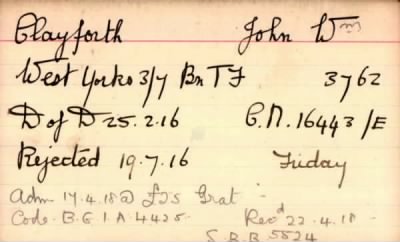 Clayforth John Wm
West Yorks 3/7 Bn TF 3762
D of D 25.2.16 C.N. 16443/E
Rejected 19.7.16 Friday
Adm 17.4.18 @ £25 Grat
Code B.G.1.A.4425. Recd 22.4.18
S.B.B 5524